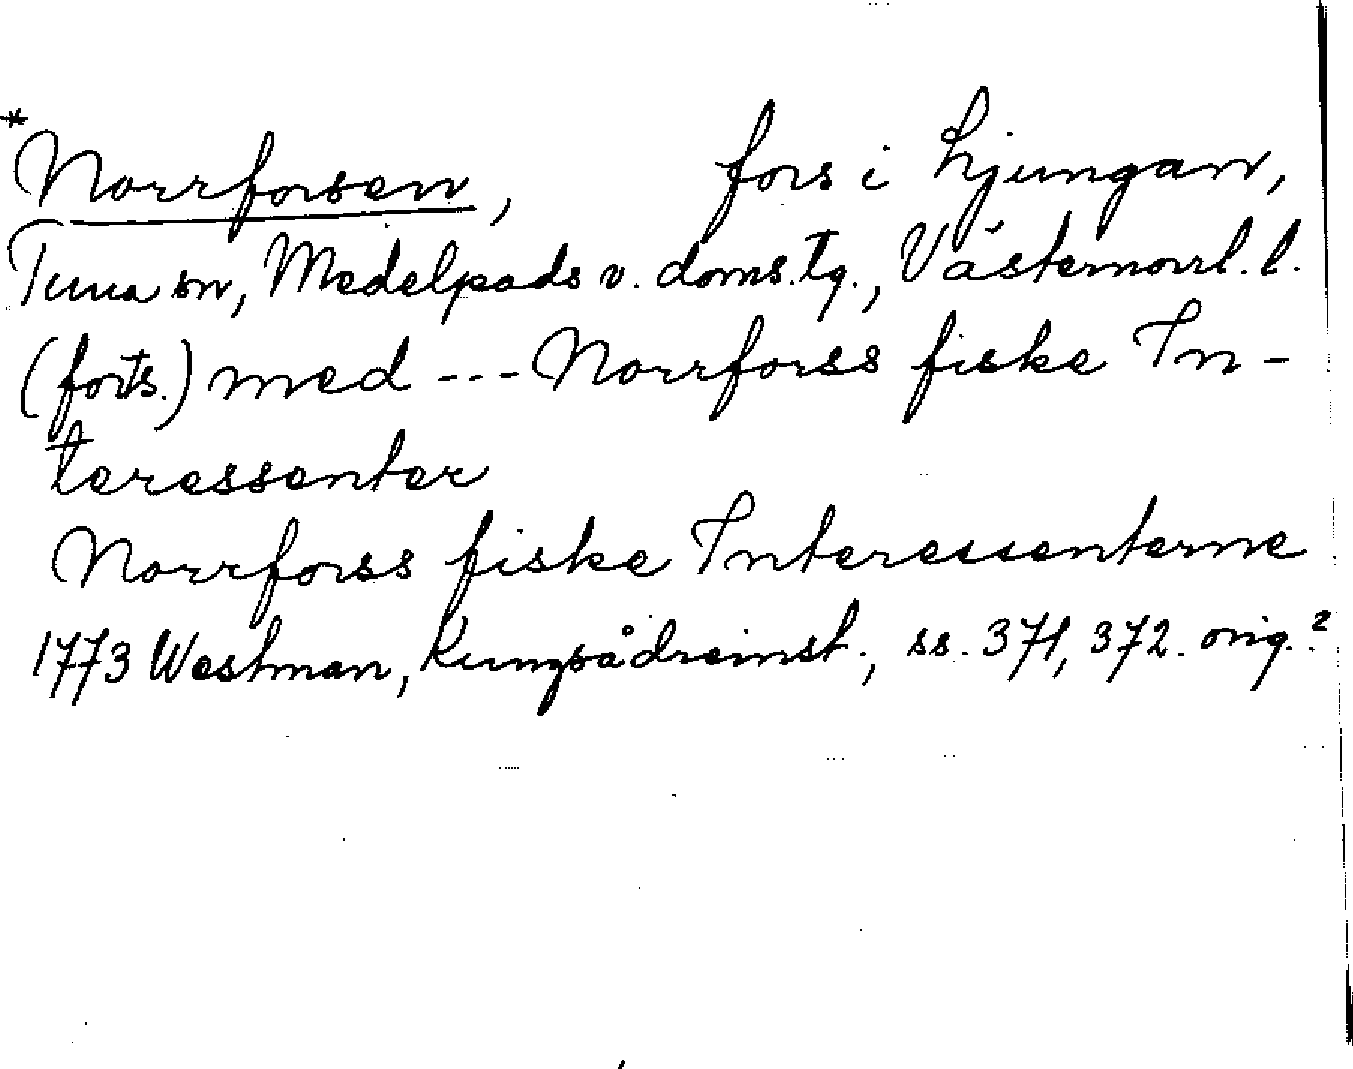 *
Norrforsen, fors i Ljungan,
Tuna sn, Medelpads v. doms. tg., Västernorrl. l.
(forts.) med --- Norrforss fiske In-
teressenter
Norrforss fiske Interessenterne
1773 Westman, Kungsådreinst., ss. 371, 372. orig.?